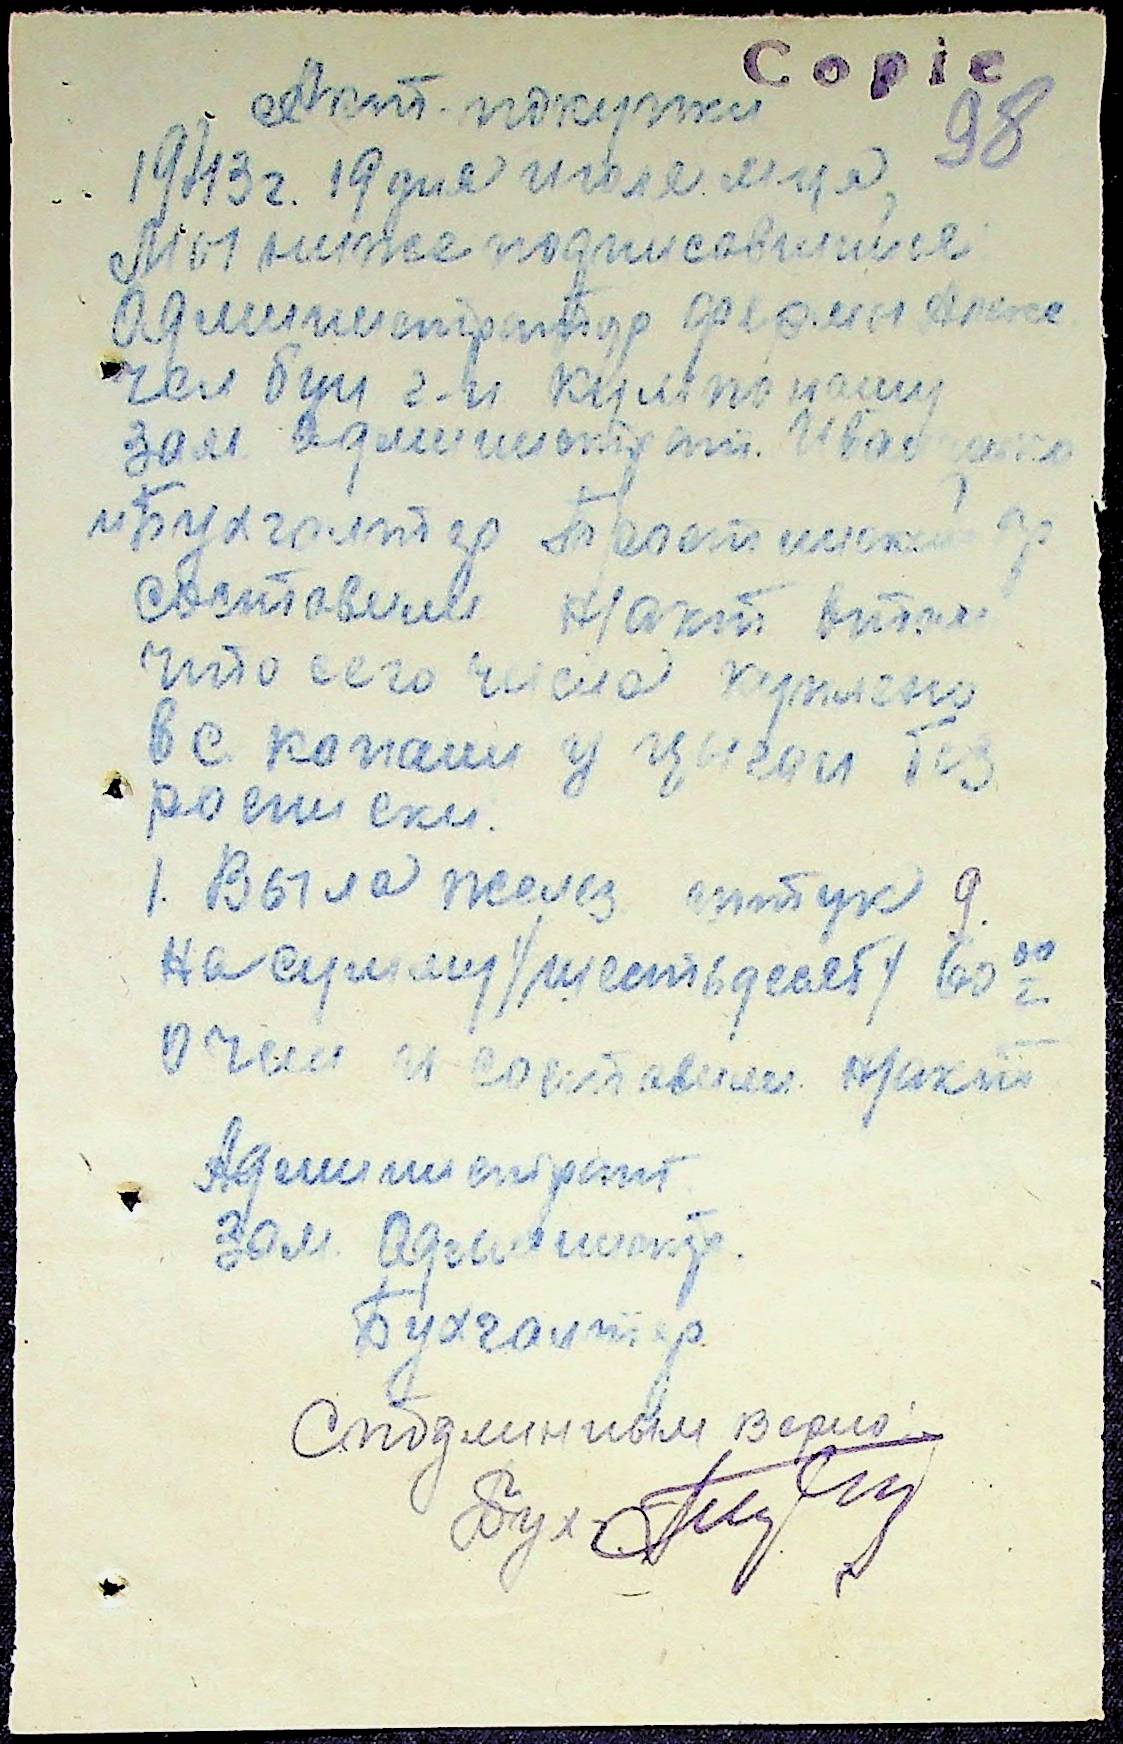 Copie
98
Акт покупки
1943 г. 19 дня июля м-ца,
Мы ниже подписавшиеся
Администратор фермы
г-н
зам. Администрат.
и Бухгалтер
составили н/акт в том
что сего числа куплено
в с. копани у цыган без
росписки.
1. Выла желез. штук 9.
на сумму /шестьдесят/ 60 00
о чем и составили н/акт
Администрат.
Зам. Администр.
Бухгалтер
С подлинным верно:
Бух.